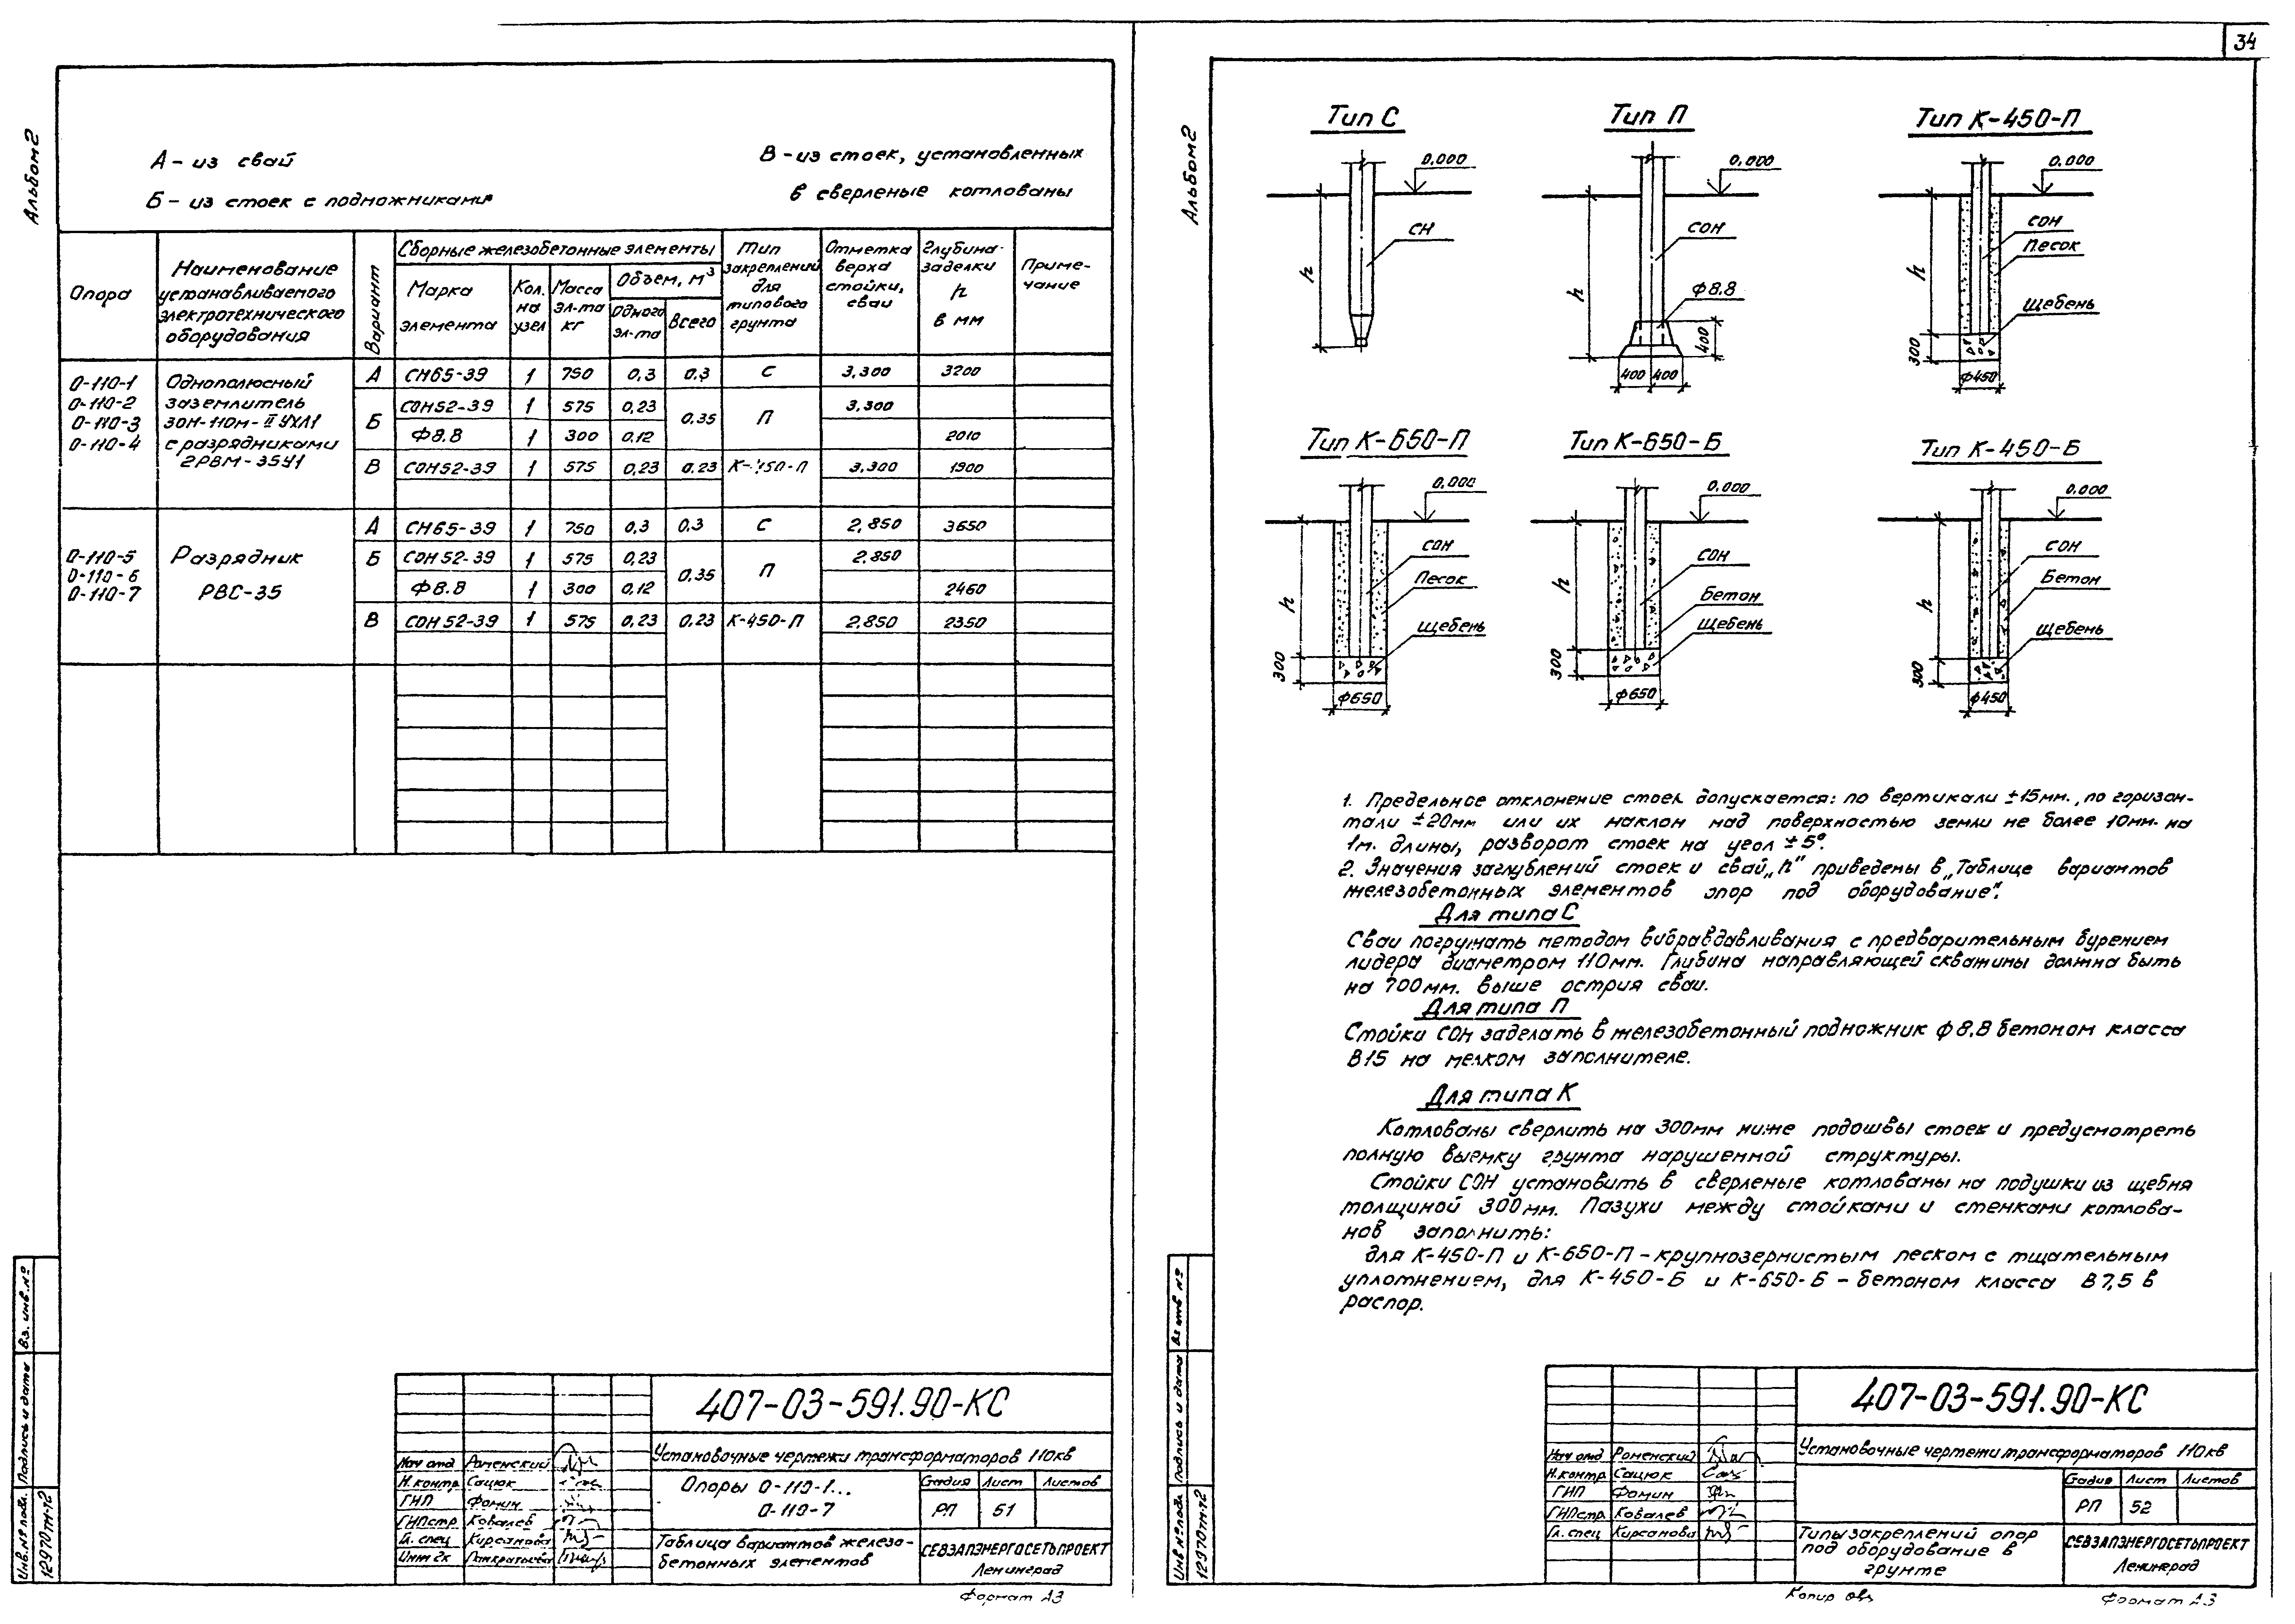 34
Альбом 2
А – из свай
Б – из стоек с подножниками
В – из стоек, установленных
в сверленые котлованы
Опора
Наименование
устанавливаемого
электротехнического
оборудования
Вариант
Сборные железобетонные элементы
Марка
элемента
Кол.
на
узел
Масса
эл-та
кг
Объем, м³
Одного
эл-та
Всего
Тип
закреплений
для
типового
грунта
Отметка
верха
стойки,
сваи
Глубина
заделки
h
в мм
Приме-
чание
О-110-1
О-110-2
О-110-3
О-110-4
Однополюсный
заземлитель
ЗОН-110М-II УХЛ1
с разрядниками
2РВМ-35У1
А СН65-39 1 750 0,3 0,3 С 3,300 3200
Б СОН52-39 1 575 0,23 0,35 П 3,300
Ф8.8 1 300 0,12 2010
В СОН52-39 1 575 0,23 0,23 К-450-П 3,300 1900
О-110-5
О-110-6
О-110-7
Разрядник
РВС-35
А СН65-39 1 750 0,3 0,3 С 2,850 3650
Б СОН52-39 1 575 0,23 0,35 П 2,850
Ф8.8 1 300 0,12 2460
В СОН52-39 1 575 0,23 0,23 К-450-П 2,850 2350
Инв.№ подл. Подпись и дата Вз. инв.№
12970тм-т2
407-03-591.90-КС
Установочные чертежи трансформаторов 110кв
Нач отд Роменский
Н.контр Сацюк
ГНП Фомин
ГНПстр Ковалев
Гл. спец Кирсанова
Инж 2к Панкратьева
Опоры О-110-1...
О-110-7
Стадия Лист Листов
РП 51
Таблица вариантов железо-
бетонных элементов
СЕВЗАПЭНЕРГОСЕТЬПРОЕКТ
Ленинград
Формат А3
Альбом 2
Тип С
0.000
СН
h
Тип П
0.000
СОН
Ф8.8
h
400
400 400
Тип К-450-П
0.000
СОН
Песок
Щебень
h
300
ф450
Тип К-650-П
0.000
СОН
Песок
Щебень
h
300
ф650
Тип К-650-Б
0.000
СОН
Бетон
Щебень
h
300
ф650
Тип К-450-Б
0.000
СОН
Бетон
Щебень
h
300
ф450
1. Предельное отклонение стоек допускается: по вертикали ±15мм., по горизон-
тали ±20мм или их наклон над поверхностью земли не более 10мм. на
1м. длины, разворот стоек на угол ±5°.
2. Значения заглублений стоек и свай „h" приведены в „Таблице вариантов
железобетонных элементов опор под оборудование".
Для типа С
Сваи погружать методом вибравдавливания с предварительным бурением
лидера диаметром 110мм. Глубина направляющей скважины должна быть
на 700мм. выше острия сваи.
Для типа П
Стойки СОН заделать в железобетонный подножник ф8.8 бетоном класса
В15 на мелком заполнителе.
Для типа К
Котлованы сверлить на 300мм ниже подошвы стоек и предусмотреть
полную выемку грунта нарушенной структуры.
Стойки СОН установить в сверленые котлованы на подушки из щебня
толщиной 300мм. Пазухи между стойками и стенками котлова-
нов заполнить:
для К-450-П и К-650-П – крупнозернистым песком с тщательным
уплотнением, для К-450-Б и К-650-Б – бетоном класса В7,5 в
распор.
Инв №подл Подпись и дата Вз инв №
12970тм-т2
407-03-591.90-КС
Установочные чертежи трансформаторов 110кв
Нач отд Роменский
Н.контр Сацюк
ГНП Фомин
ГНПстр Ковалев
Гл. спец Кирсанова
Стадия Лист Листов
РП 52
Типы закреплений опор
под оборудование в
грунте
СЕВЗАПЭНЕРГОСЕТЬПРОЕКТ
Ленинград
Копир
Формат А3